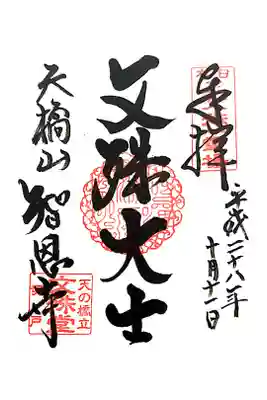 奉拝
平成二十八年
十月十一日
文殊大士
天橋山
智恩寺
天の橋立
文珠堂